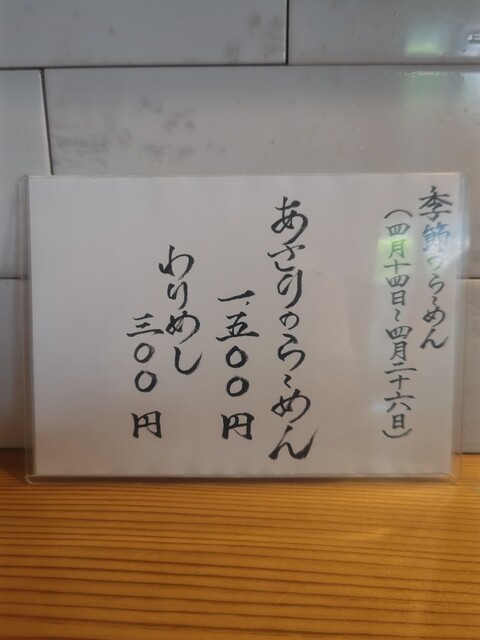 季節のらーめん
（四月十四日～四月二十六日）
あさりのらーめん
一、五〇〇円
わりめし
三〇〇円